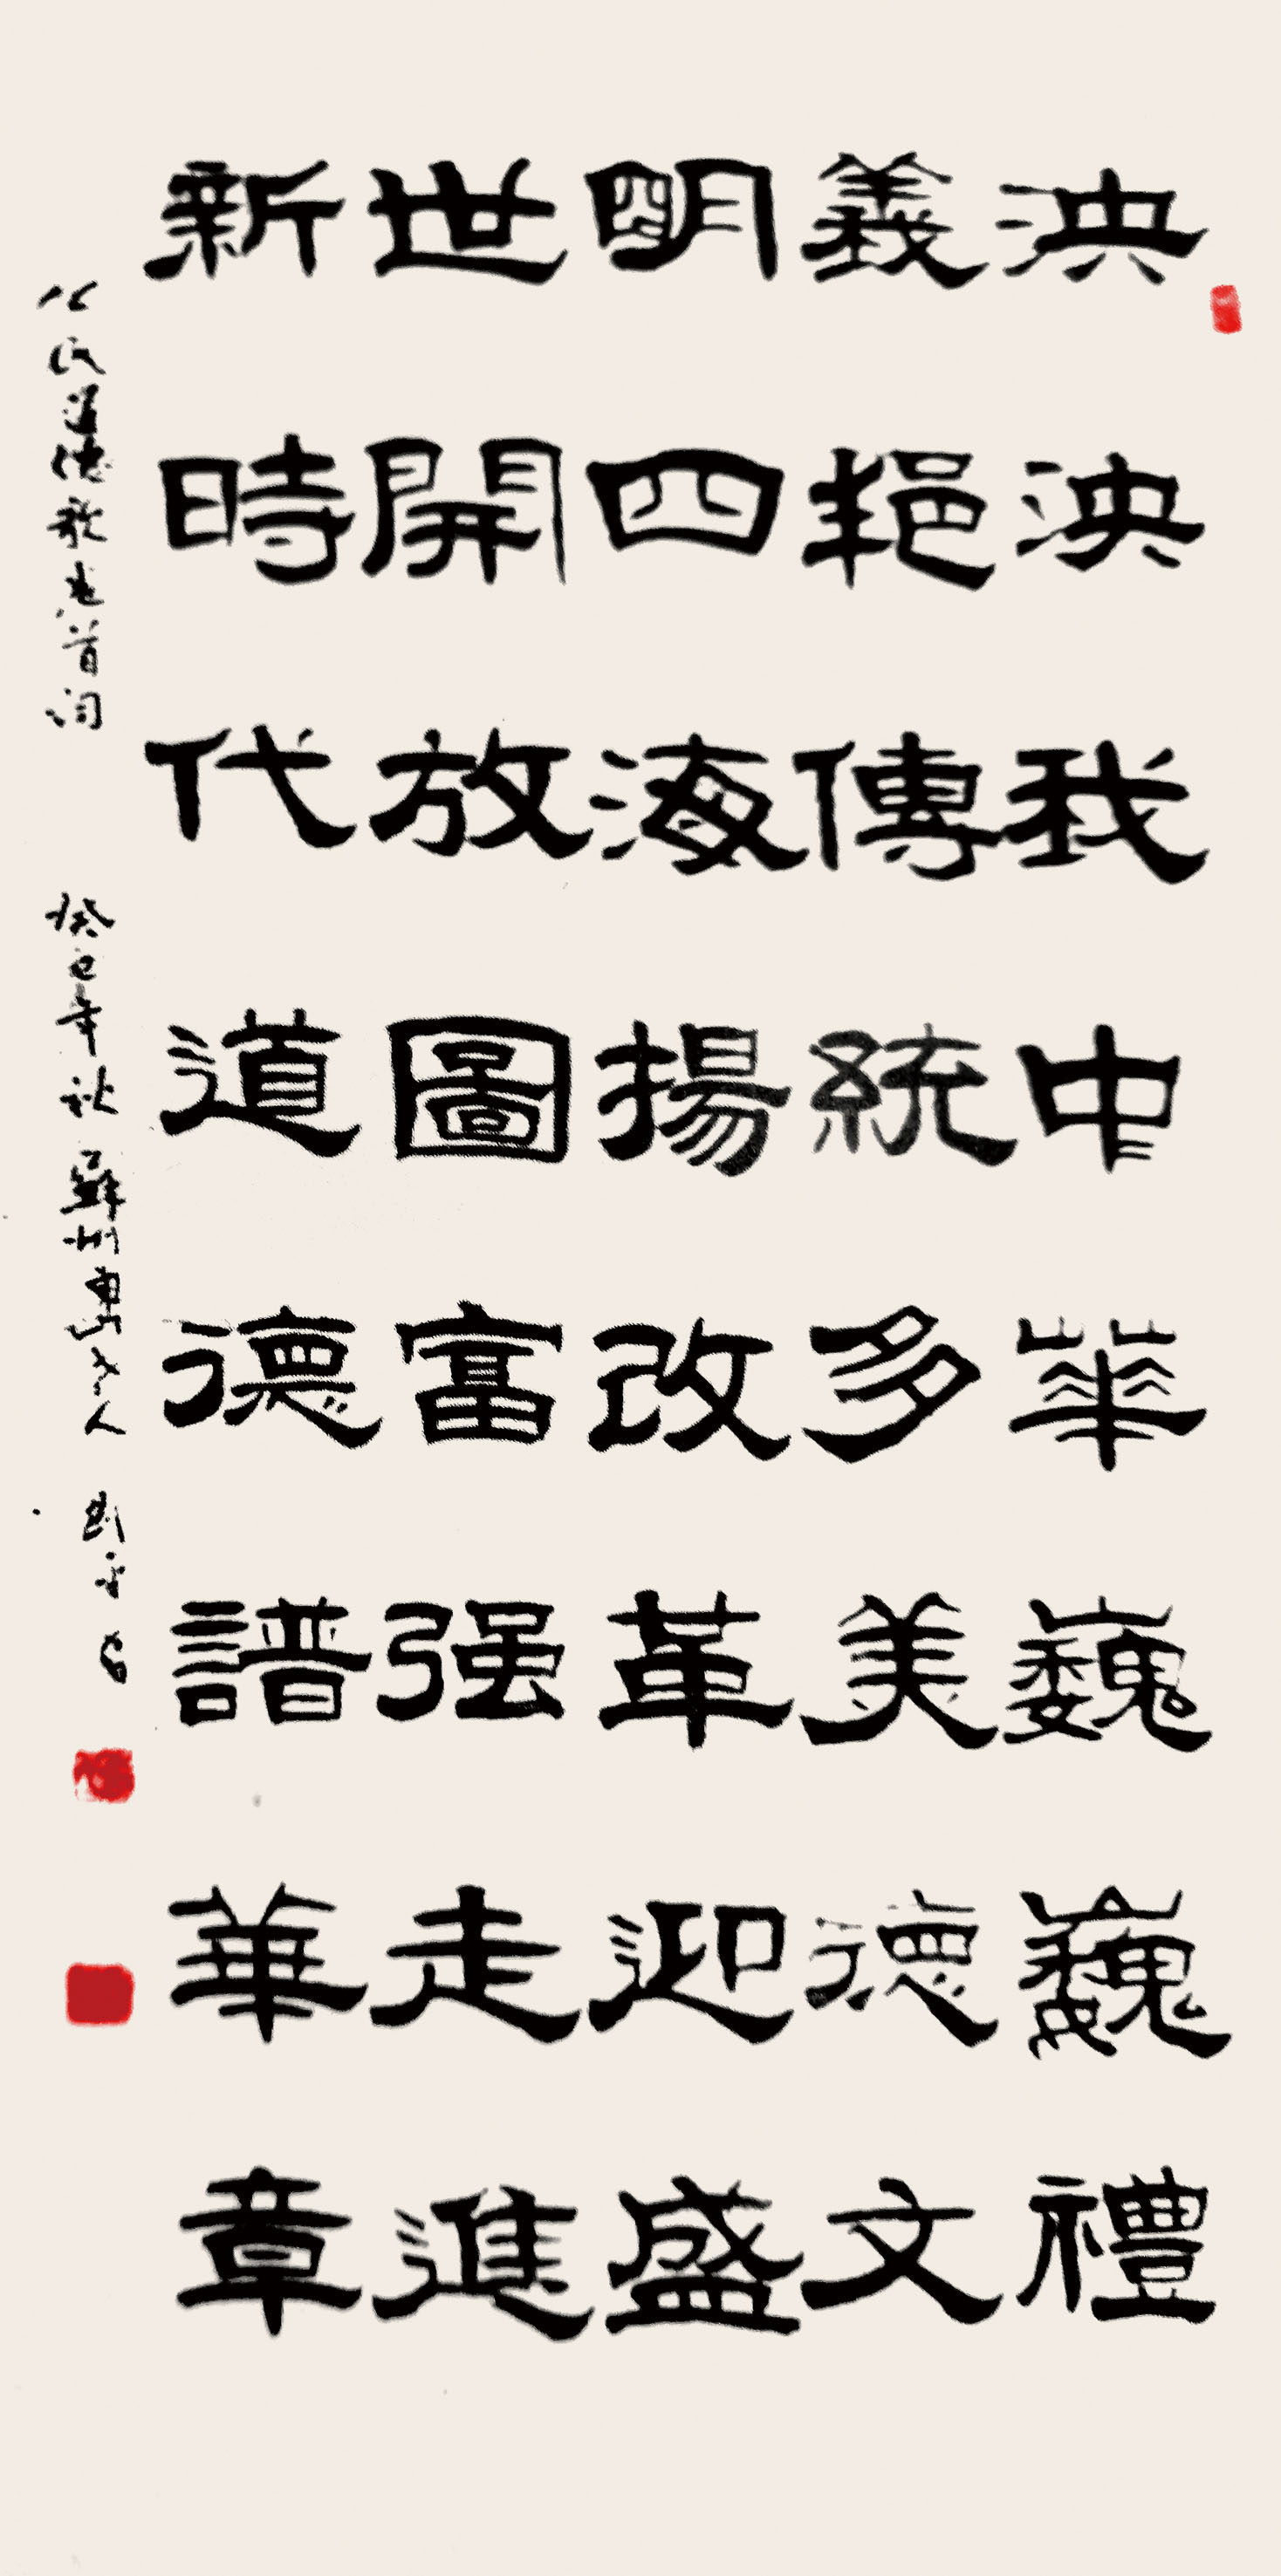 泱泱我中華巍巍禮
義艳傳統多美德文
明四海揚改革迎盛
世開放圖富强走進
新時代道德譜華章
公民道德歌卷首词 癸巳年秋 蘇州惠山老人